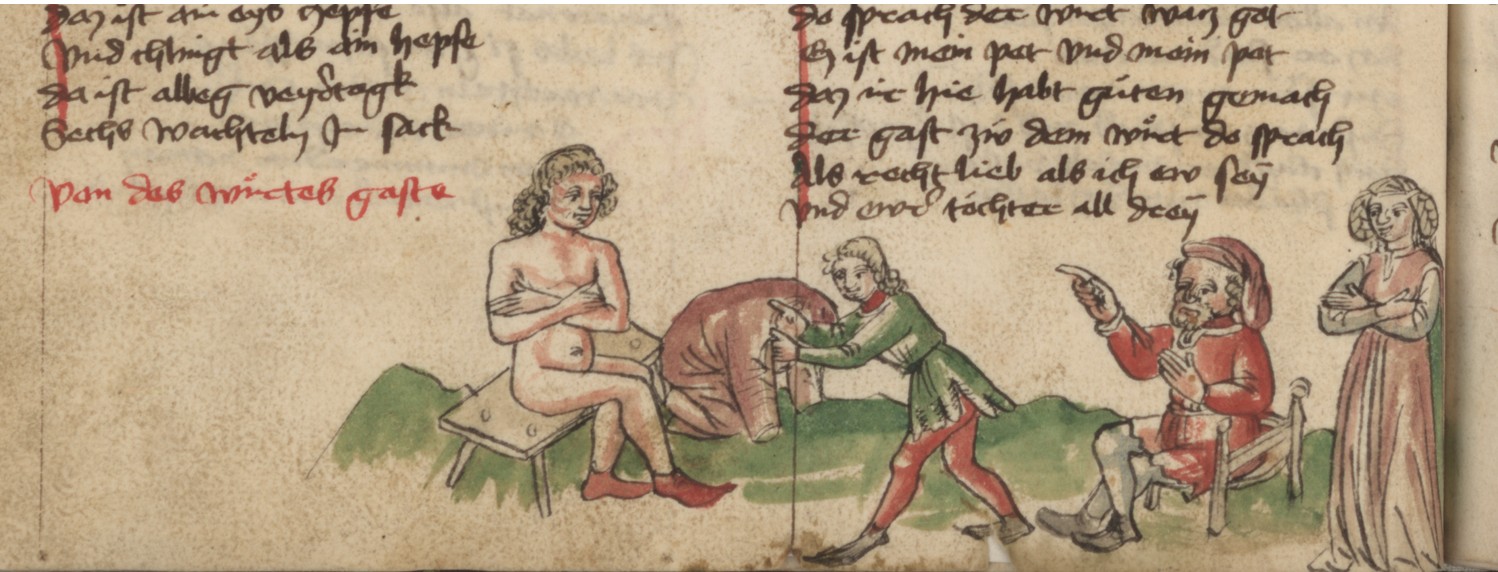 Daz ist ain eys hepfe
Vnd chlingt als ain hepfe
da ist albeg veyrtagk
Sechs wachteln In sack
Von des wůrtes gaste
do sprach der wirt waz got
Ez ist mein pet vnd mein pet
daz ir hie habt gůten gemach
der gast zw dem wůrt do sprach
Als recht lieb als ich ew seÿ
vnd ewr tochter all dreÿ